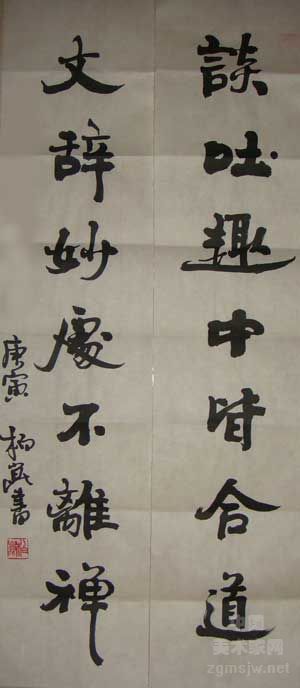 談吐趣中皆合道
文辞妙處不離禅
庚寅 柳
書
中国
美术家网
zgmsjw.net